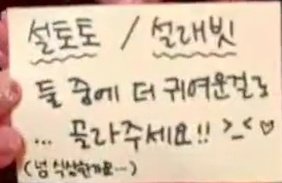 설토토 / 설래빗
둘 중에 더 귀여운걸로
... 골라주세요!! >_<♡
(넘 식상한가요...)